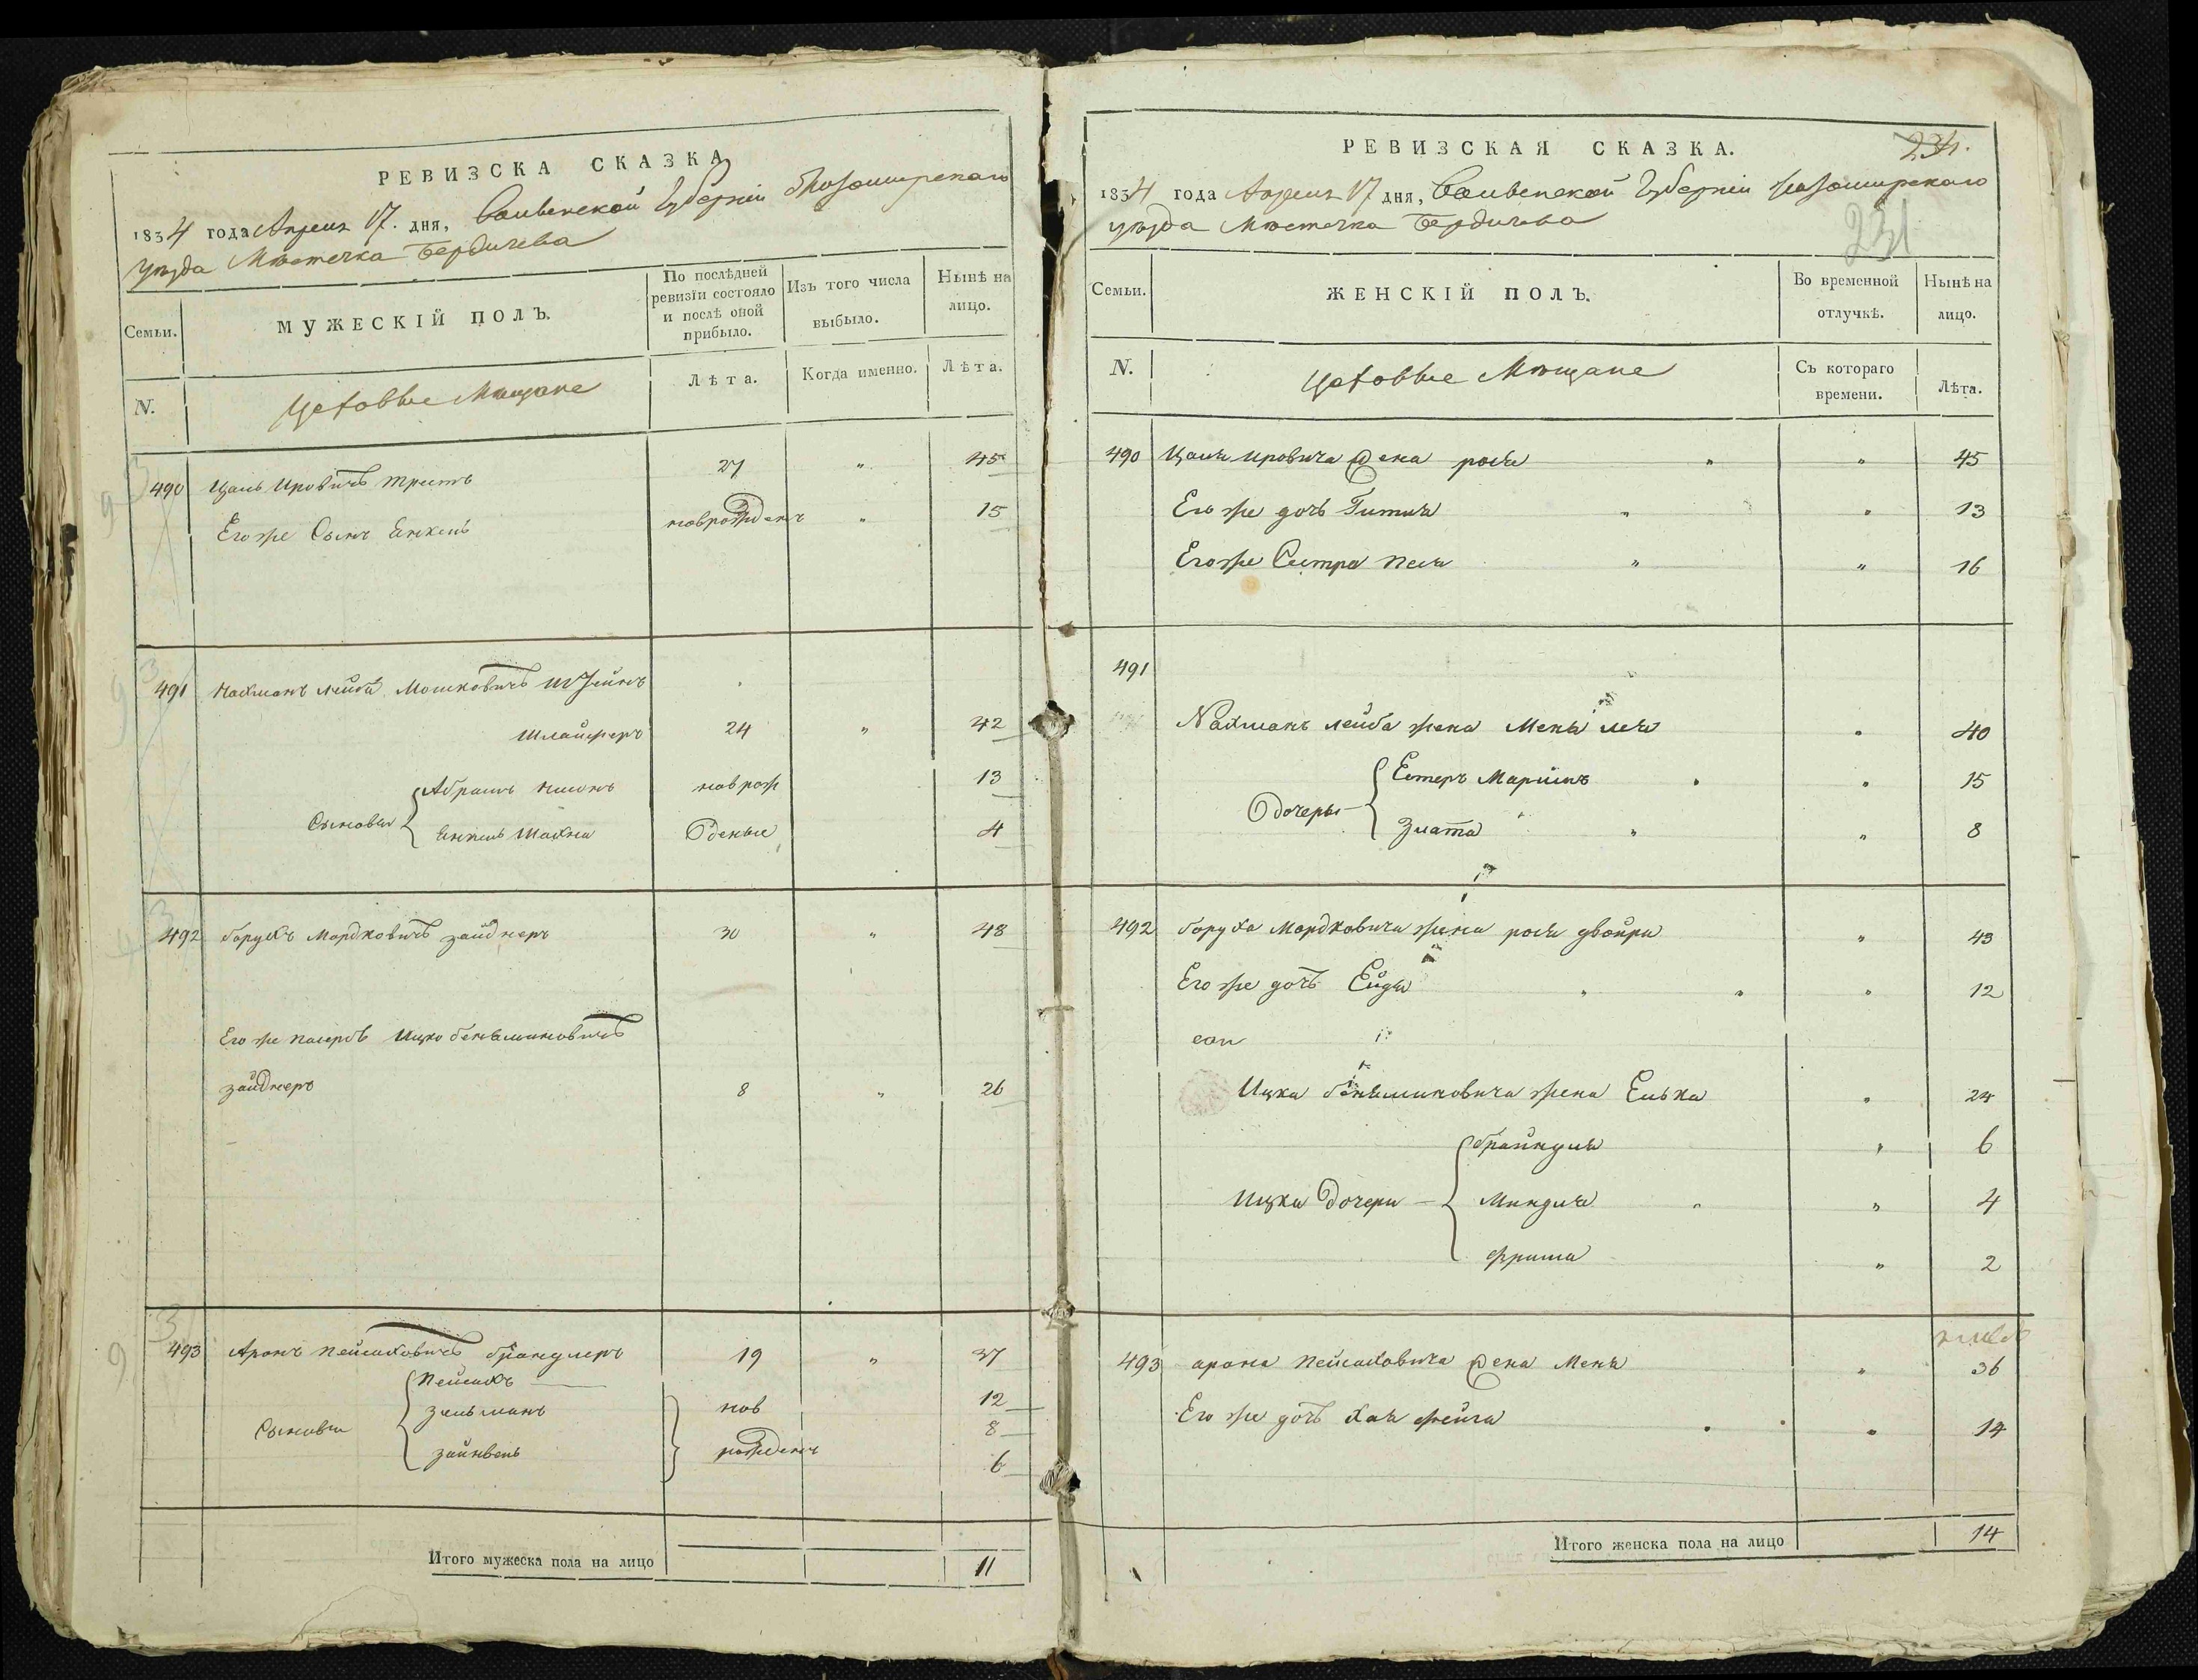 РЕВИЗСКА СКАЗКА
1834 года Апреля 17. дня, Волынской Губернїи Житомирскаго
уѣзда Мѣстечка Бердичева
Семьи.
МУЖЕСКІЙ ПОЛЪ.
По послѣдней ревизїи состояло и послѣ оной прибыло.
Изъ того числа выбыло.
Нынѣ на лицо.
N.
Цеховые Мѣщане
Лѣта.
Когда именно.
Лѣта.
490 Ицковичъ 27 " 45
Его же Сынъ Янкель новрожденъ " 15
491 Нахманъ Лейба Мошковичъ
Шлайферъ 24 " 42
Сыновья { Абрамъ новрож 13
Янкель Шахна денные 4
492 Борухъ Мордковичъ Зайднеръ 30 " 48
Его же пасербъ Ицко Беньяминовичъ
Зайднеръ 8 " 26
493 Аронъ Пейсаховичъ 19 " 37
Сыновья { Пейсахъ нов 12
Зельманъ 8
Зайнвель рожден 6
Итого мужеска пола на лицо 11
РЕВИЗСКАЯ СКАЗКА.
231
1834 года Апреля 17 дня, Волынской Губернїи Житомирскаго
уѣзда Мѣстечка Бердичева
231
Семьи.
ЖЕНСКІЙ ПОЛЪ.
Во временной отлучкѣ.
Нынѣ на лицо.
N.
Цеховые Мѣщане
Съ котораго времени.
Лѣта.
490 жена рося " " 45
Его же дочь Гитля " " 13
Его же Сестра Песя " " 16
491
Нахманъ Лейба жена " 40
дочеры { Естеръ Маріимъ " " 15
Злата " " 8
492 Боруха Мордковича жена рося двойра " 43
Его же дочь Ейдя " " " 12
Ицка Беньяминовича жена Елька " 24
Ицки дочери { брайндля " 6
Миндля " " 4
Фрима " 2
493 арона Пейсаховича жена Меня " 36
Его же дочь Хая Фейга " " 14
Итого женска пола на лицо 14